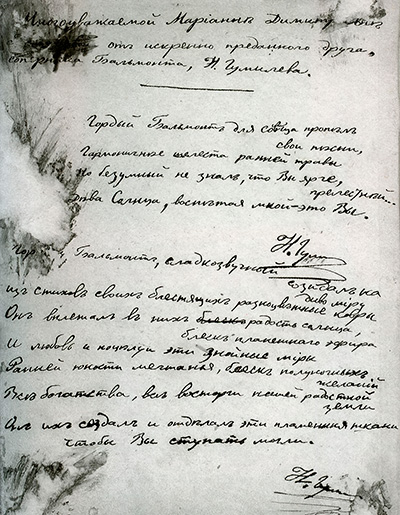 Многоуважаемой Маріаннѣ Димитр
отъ искренно преданного друга,
соперника Бальмонта, Н. Гумилева.
Гордый Бальмонтъ для солнца пропѣлъ
свои пѣсни,
Гармоничные шелеста ранней травы
Но безумный не зналъ, что Вы ярче,
прелестнѣй..
Дѣва Солнца, воспѣтая мной – это Вы.
Н. Гум
Гор Бальмонтъ, сладкозвучный
созидалъ какъ
диво міру
изъ стиховъ своихъ блестящихъ разноцвѣтные ковры
Онъ вплеталъ въ нихъ радость солнца,
блескъ пламеннаго эфира
И любовь и поцѣлуи эти знойные
Ранней юности мечтанья, блескъ полуночныхъ
желаній
Всѣ богатства, всѣ восторги нашей радостной
земли
Онъ ихъ создалъ и отдѣлалъ эти пламенныя ткани
чтобы Вы ступать могли.
Н. Гум